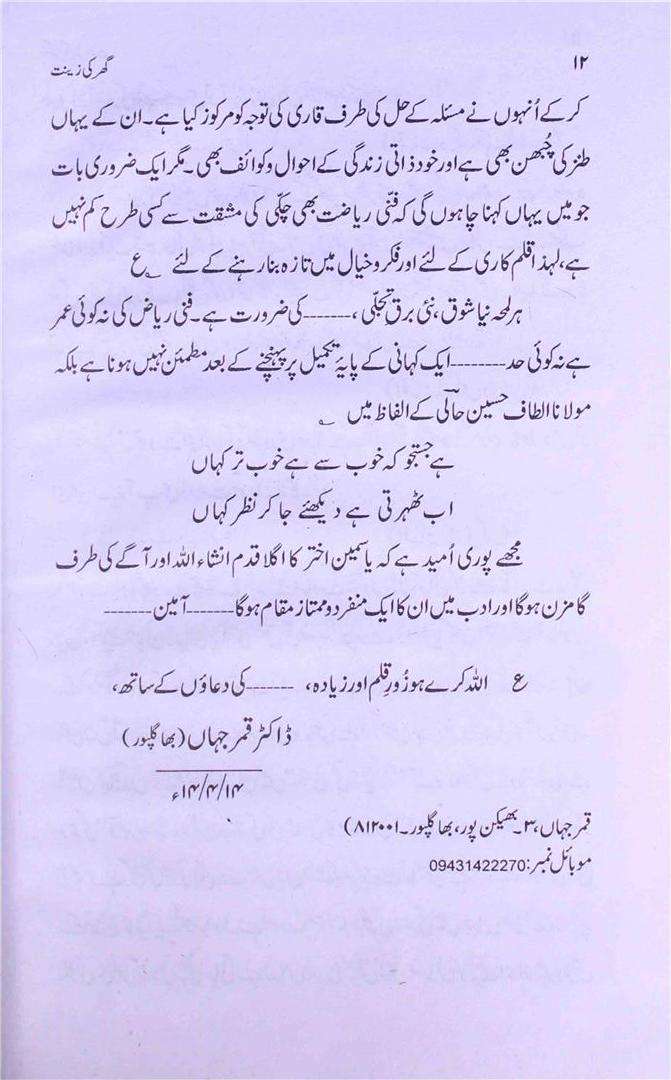 ۱۲
گھر کی زینت
کر کے اُنہوں نے مسئلہ کے حل کی طرف قاری کی توجہ کو مرکوز کیا ہے۔ ان کے یہاں
طنز کی چُبھن بھی ہے اور خود ذاتی زندگی کے احوال و کوائف بھی۔ مگر ایک ضروری بات
جو میں یہاں کہنا چاہوں گی کہ فنّی ریاضت بھی چکّی کی مشقت سے کسی طرح کم نہیں
ہے، لہٰذا قلم کاری کے لئے اور فکر و خیال میں تازہ بنا رہنے کے لئے ؎ ع
ہر لمحہ نیا شوق، نئی برقِ تجلّی ،------- کی ضرورت ہے۔ فنی ریاض کی نہ کوئی عمر
ہے نہ کوئی حد-------- ایک کہانی کے پایۂ تکمیل پر پہنچنے کے بعد مطمئن نہیں ہونا ہے بلکہ
مولانا الطاف حسین حالؔی کے الفاظ میں ؎
ہے جستجو کہ خوب سے ہے خوب تر کہاں
اب ٹھہرتی ہے دیکھئے جا کر نظر کہاں
مجھے پوری اُمید ہے کہ یاسمین اختر کا اگلا قدم انشاء اللہ اور آگے کی طرف
گامزن ہوگا اور ادب میں ان کا ایک منفرد و ممتاز مقام ہوگا------- آمین-------
ع اللہ کرے ہو زُورِ قلم اور زیادہ، ------- کی دعاؤں کے ساتھ،
ڈاکٹر قمر جہاں (بھاگلپور)
۱۴/۴/۱۴ء
قمر جہاں، ۳۔ بھیکن پور، بھاگلپور۔ ۸۱۲۰۰۱)
موبائل نمبر: 09431422270